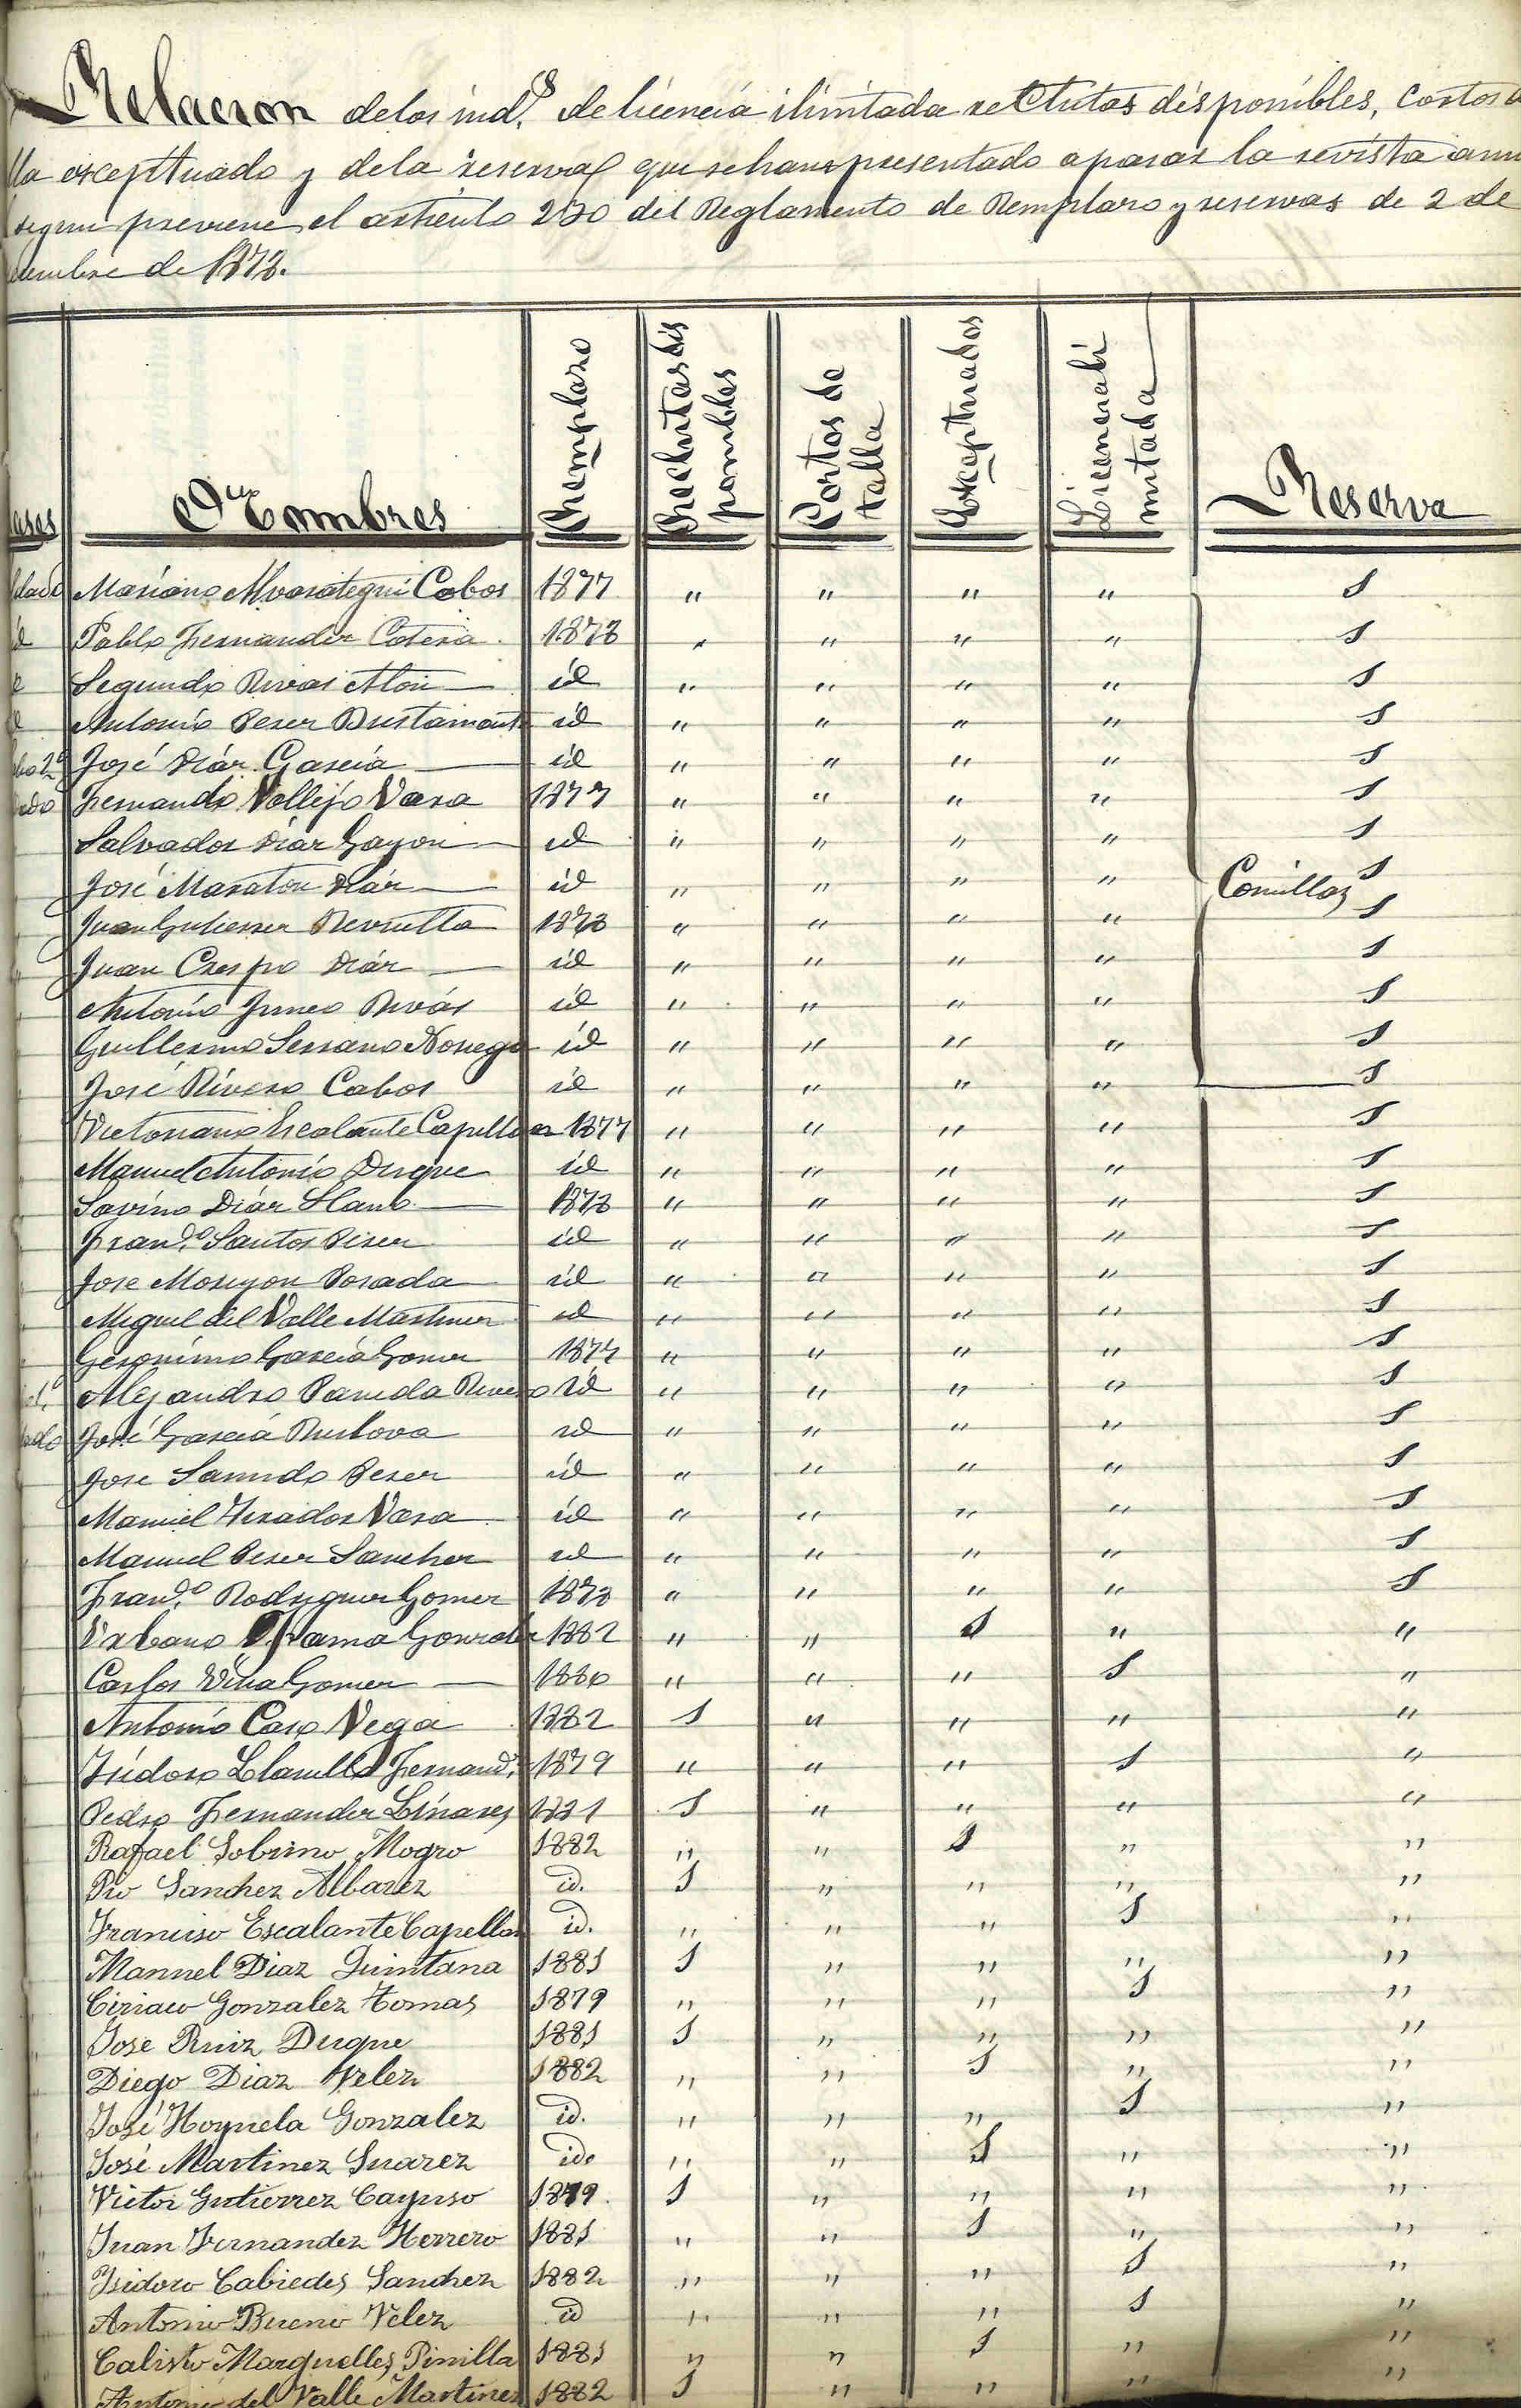 Relacion de los ind.s de licencia ilimitada reclutas disponibles, cortos
lla exceptuado y de la reserva que se han presentado a pasar la revista anu
segun previene el articulo 230 del Reglamento de Remplazo y reservas de 2 de
iembre de 1878.
ases Nombres Reemplazo Reclutas dis ponibles Cortos de talla Exceptuados Licencia ili mitada Reserva
Mariano Alvarategui Cobos 1877 " " " " 1
id Pablo Fernandez Cotera 1878 " " " " 1
Segundo Rivas id " " " " 1
Antonio Perez Bustamante id " " " " 1
bo 2º José Diáz Garcia id " " " " 1
ado Fernando Vallejo Vara 1877 " " " " 1
Salvador Diáz Gayon id " " " " 1
José Maraton Diáz id " " " " Comillas 1
Juan Gutierrez Revuelta 1878 " " " " 1
Juan Crespo Diáz id " " " " 1
Antonio Rivás id " " " " 1
Guillermo Serrano Noriega id " " " " 1
José Rivero Cobos id " " " " 1
Victoriano Escalante Capillan 1877 " " " " 1
Manuel Antonio Duque id " " " " 1
Savino Diáz Llano 1878 " " " " 1
Fran.co Santos Perez id " " " " 1
Jose Moreyon Posada id " " " " 1
Miguel del Valle Martinez id " " " " 1
Geronimo Garcia Gomez 1877 " " " " 1
Alejandro Parnda Rivero id " " " " 1
ado José Garcia Ruilova id " " " " 1
Jose Sanudo Perez id " " " " 1
Manuel Tirador Vara id " " " " 1
Manuel Perez Sanchez id " " " " 1
Fran.co Rodriguez Gomez 1878 " " " " 1
Urbano Gonzalez 1882 " " 1 " "
Carlos Viña Gomez 1880 " " " 1 "
Antonio Caso Vega 1882 1 " " " "
Isidoro Llanillo Fernand.z 1879 " " " 1 "
Pedro Fernandez Linares 1881 1 " " " "
Rafael Sobrino Mogro 1882 " " 1 " "
Pio Sanchez Albarez id. 1 " " " "
Francisco Escalante Capellan id. " " " 1 "
Manuel Diaz Quintana 1881 1 " " " "
Ciriaco Gonzalez Tomas 1879 " " " 1 "
Jose Ruiz Duque 1881 1 " " " "
Diego Diaz Velez 1882 " " 1 " "
José Hoyuela Gonzalez id. " " " 1 "
José Martinez Suarez id. " " 1 " "
Victor Gutierrez Cayuso 1879. 1 " " " "
Juan Fernandez Herrero 1881 " " 1 " "
Isidoro Cabiedes Sanchez 1882 " " " 1 "
Antonio Bueno Velez id " " " 1 "
Calisto Marquelles Pinilla 1881 " " 1 " "
Antonio del Valle Martinez 1882 1 " " " "